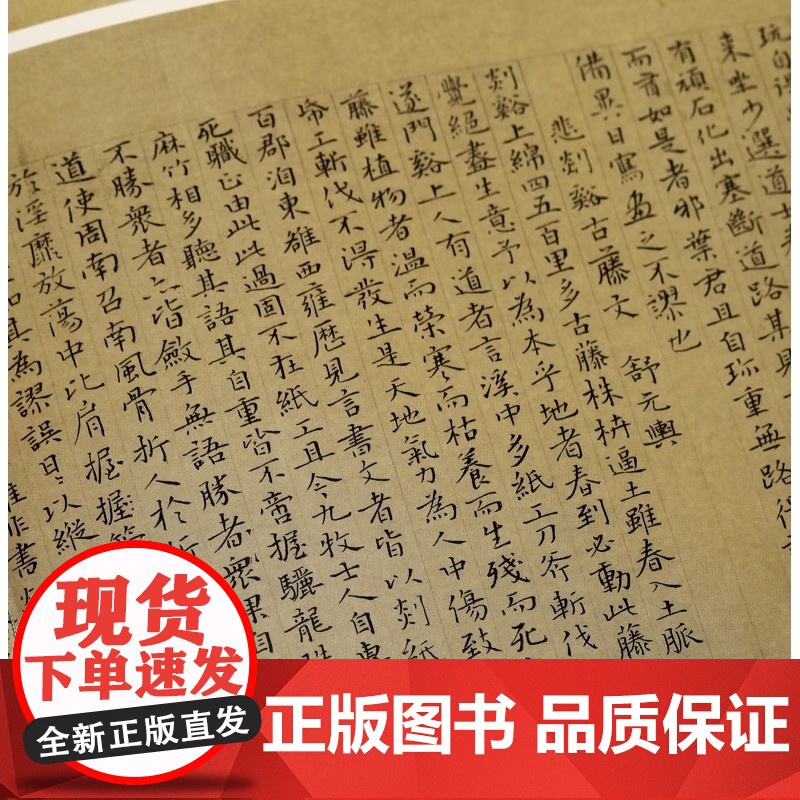 玩自
來坐少選道士
有頑石化出塞斷道路某見
而肅如是者邪葉君且自珍重無路行
備異日寫畫之不謬也
悲剡谿古藤文 舒元輿
剡谿上綿四五百里多古藤株枿逼土雖春入土脈
覺絕盡生意予以為本乎地者春到必動此藤
遂問谿上人有道者言溪中多紙工刀斧斬伐
藤雖植物者溫而榮寒而枯養而生殘而死
帋工斬伐不得發生是天地氣力為人中傷致
百郡洎東雒西雍歷見言書文者皆以剡紙
死職正由此此過固不在紙工且今九牧士人自專
麻竹相多聽其語其自重皆不啻握驪龍珠
不勝衆者亦皆斂手無語勝者衆果自
道使周南召南風骨折人於折
於淫靡放蕩中比肩握握管
其為謬誤日日以縱
雖非書剡
现货
下单速发
全新正版直发
正版图书 品质保证